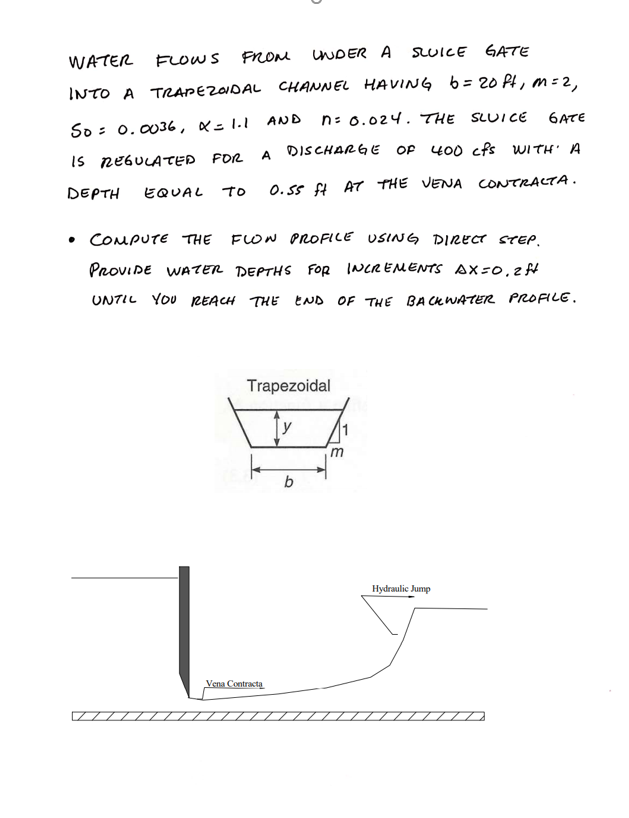 WATER FLOWS FROM UNDER A SLUICE GATE
INTO A TRAPEZOIDAL CHANNEL HAVING b = 20 ft, m = 2,
So = 0.0036, α = 1.1 AND n = 0.024. THE SLUICE GATE
IS REGULATED FOR A DISCHARGE OF 400 cfs WITH A
DEPTH EQUAL TO 0.55 ft AT THE VENA CONTRACTA.
• COMPUTE THE FLOW PROFILE USING DIRECT STEP.
PROVIDE WATER DEPTHS FOR INCREMENTS ΔX=0.2 ft
UNTIL YOU REACH THE END OF THE BACKWATER PROFILE.
Trapezoidal
y
1
m
b
Hydraulic Jump
Vena Contracta